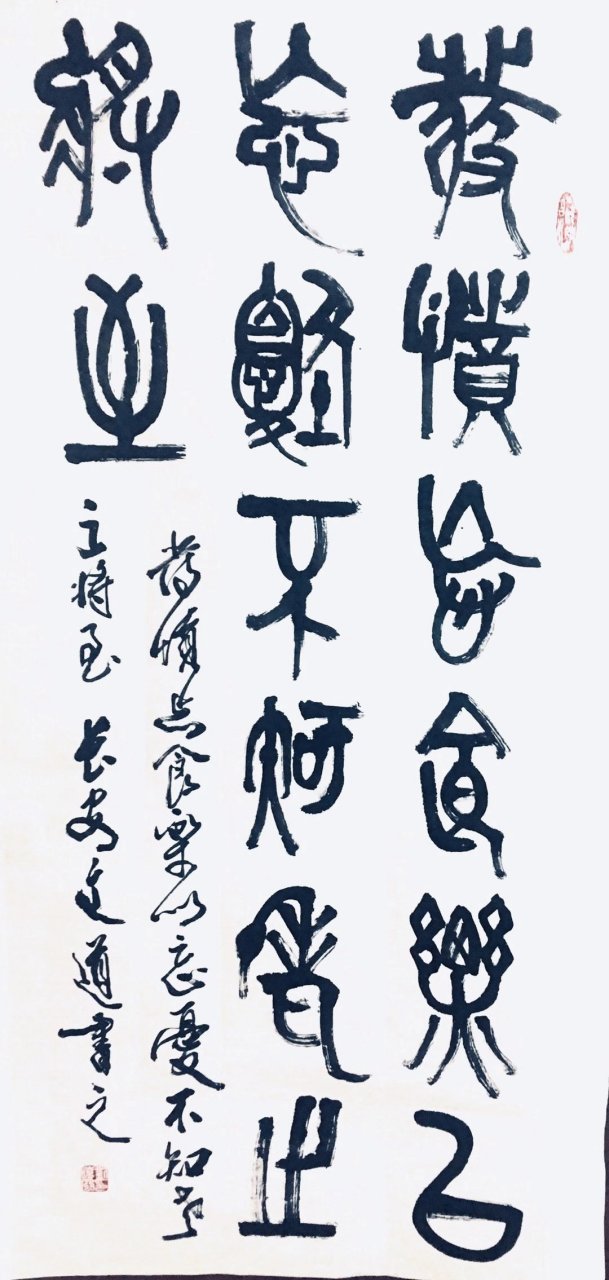 發憤忘食樂以
忘憂不知老之
將至
發憤忘食樂以忘憂不知老
之將至 長安文道書之